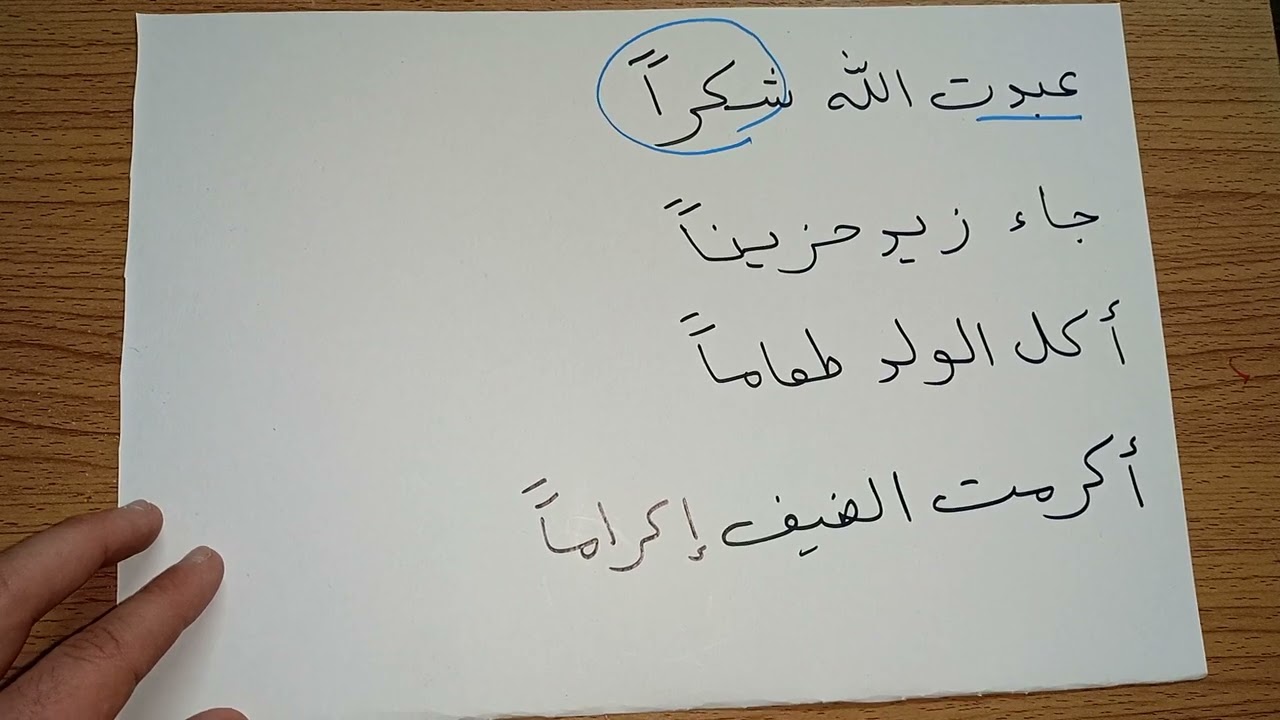 عبدت الله شكراً
جاء زيد حزيناً
أكل الولد طعاماً
أكرمت الضيف إكراماً